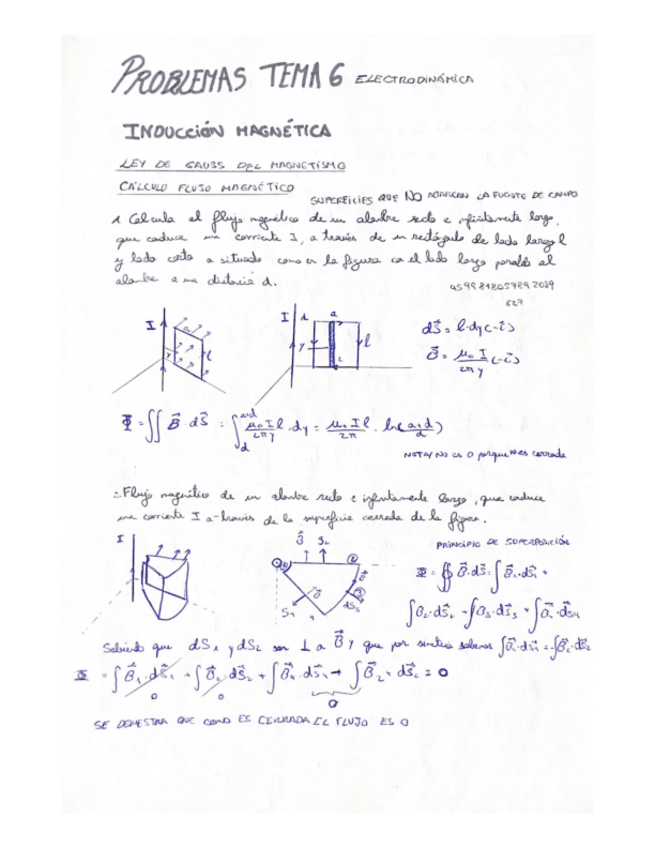 PROBLEMAS TEMA 6 ELECTRODINÁMICA
INDUCCIÓN MAGNÉTICA
LEY DE GAUSS DEL MAGNETISMO
CÁLCULO FLUJO MAGNÉTICO
SUPERFICIES QUE NO ABARCAN LA FUENTE DE CAMPO
1. Calcula el flujo magnético de un alambre recto e infinitamente largo,
que conduce una corriente I, a través de un rectángulo de lado largo l
y lado corto a situado como en la figura con el lado largo paralelo al
alambre a una distancia d.
I
a
l
I d a
y
l
dS⃗ = l·dy(-i⃗)
B⃗ = μ₀I/2πy (-i⃗)
Φ = ∬ B⃗·dS⃗ = ∫_d^{a+d} μ₀Il/2πy · dy = μ₀Il/2π · ln(a+d/d)
NOTA: NO es 0 porque no es cerrada
2. Flujo magnético de un alambre recto e infinitamente largo, que conduce
una corriente I a través de la superficie cerrada de la figura.
I
PRINCIPIO DE SUPERPOSICIÓN
Sabiendo que dS₁ y dS₂ son ⊥ a B⃗ y que por simetría sabemos
SE DEMUESTRA QUE COMO ES CERRADA EL FLUJO ES 0